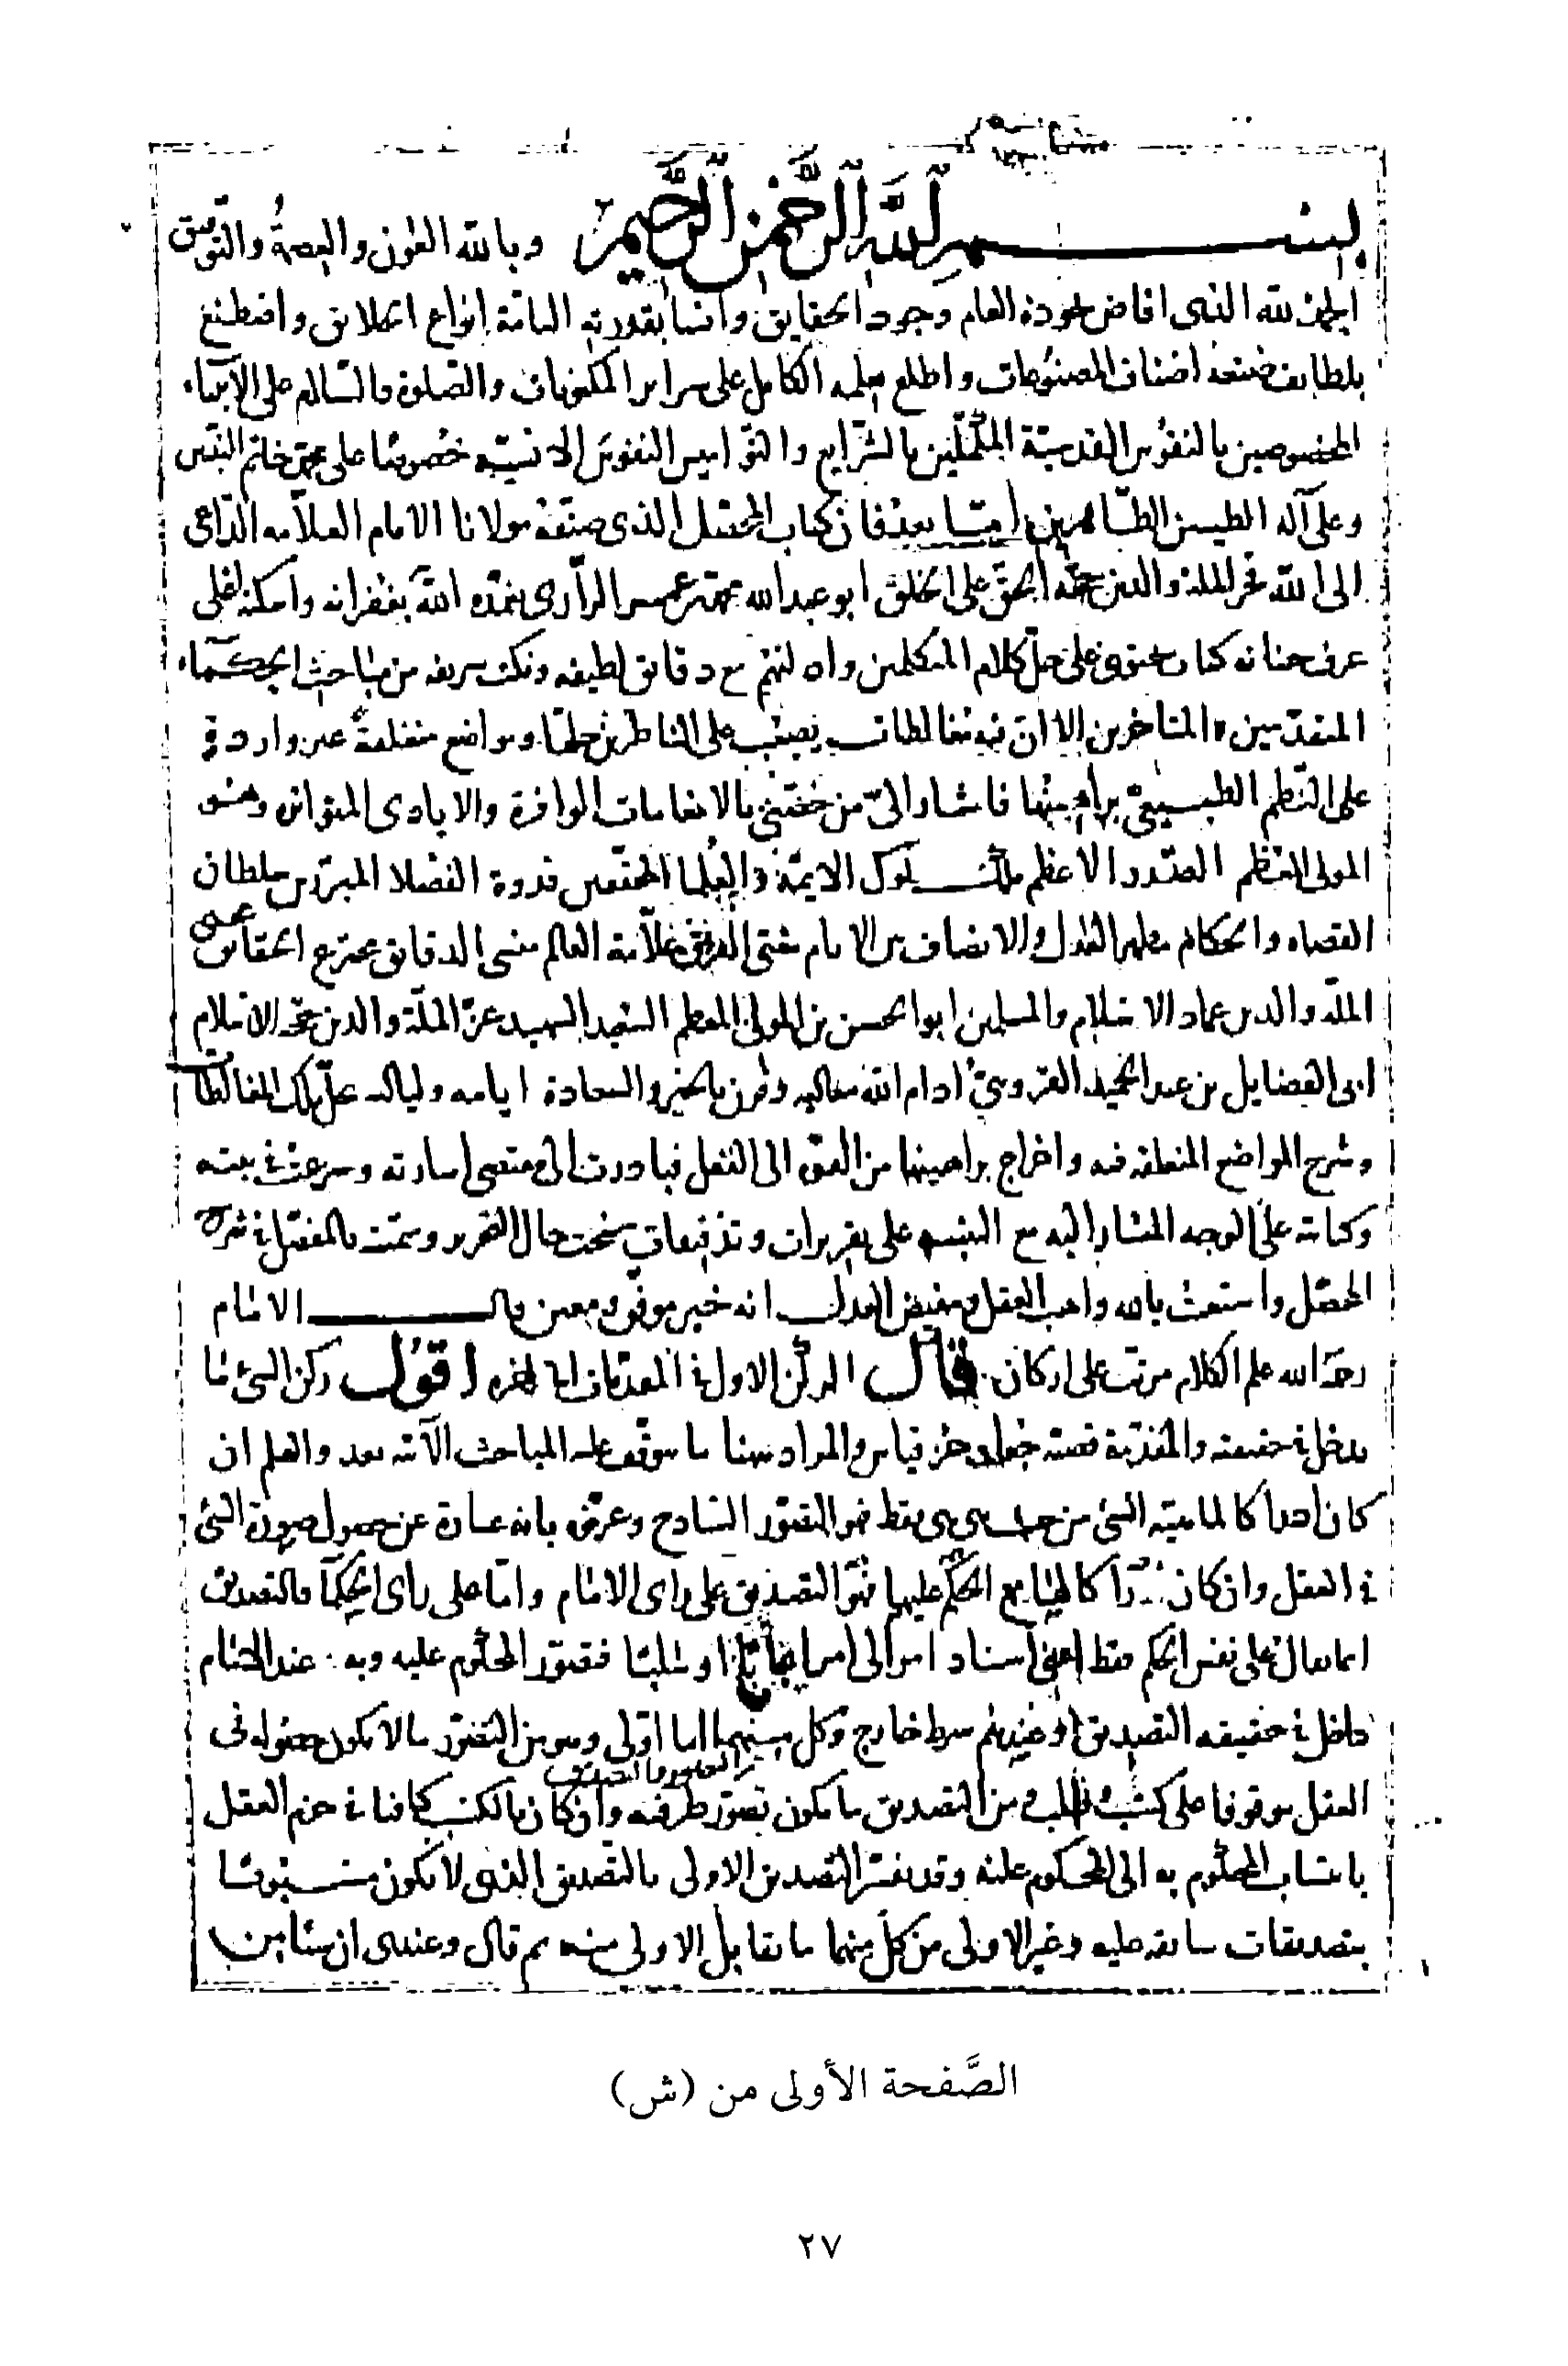 بسم الله الرحمن الرحيم وبالله العون والعصمة والتوفيق
الحمد لله الذي افاض بجوده العام وجود الحقايق وانشا بقدرته التامة انواع الخلايق واصطنع
بلطايف صنعه اصناف المصنوعات واطلع بعلمه الكامل على سراير المكنونات والصلوة والسلام على الانبياء
المخصوصين بالنفوس القدسية المكملين بالشرايع والنواميس النفوس الانسية خصوصا على محمد خاتم النبيين
وعلى آله الطيبين الطاهرين اما بعد فان كتاب المحصل الذي صنفه مولانا الامام العلامه الداعي
الى الله فخر الملة والدين حجة الحق على الخلق ابو عبد الله محمد بن عمر الرازى تغمده الله بغفرانه واسكنه اعلى
غرف جنانه كتاب يحتوى على جل كلام المتكلمين وادلتهم مع دقايق لطيفه ونكت شريفه من مباحث الحكماء
المتقدمين والمتاخرين الا ان فيه مغالطات يصعب على الناظرين حلها ومواضع منغلقة غير واردة
على النظم الطبيعي براهينها فاشار الى من خصني بالانعامات الوافرة والايادى المتواتره وهو
المولى المعظم الصدر الاعظم ملك ملوك الايمة والعلما المحققين قدوة الفضلا المبرزين سلطان
القضاه والحكام مظهر العدل والانصاف بين الانام مفتى الفريقين علامة العالم منشى الدقايق مخترع الحقايق
الملة والدين عماد الاسلام والمسلمين ابو الحسن بن المولى المعظم السعيد الشهيد عز الملة والدين مجد الاسلام
ابى الفضايل بن عبد الحميد القزوينى ادام الله معاليه وقرن بالخير والسعادة ايامه ولياليه بحل تلك المغالطات
وشرح المواضع المنغلقه فيه واخراج براهينها من القوة الى الفعل فبادرت الى مقتضى اشارته وسرعت في
وكتابته على الوجه المشار اليه مع التنبيه على تقريرات وتدقيقات سنحت حال التقرير وسميته بالمفصل في شرح
المحصل واستعنت بالله واهب العقل ومفيض العدل انه خير موفق ومعين قال الامام
رحمه الله علم الكلام مرتب على اركان قال الركن الاول في المقدمات الى اخره اقول ركن الشئ ما
يدخل في حقيقته والمقدمة قضية جعلت جزء قياس والمراد هنا ما يتوقف عليه المباحث الآتيه بعد والعلم ان
كان ادراكا لماهية الشئ من حيث هي هي فقط فهو التصور الساذج وعرف بانه عبارة عن حصول صورة الشئ
في العقل وان كان ادراكا لها مع الحكم عليها فهو التصديق على راى الامام واما على راى الحكما فالتصديق
انما يقال على نفس الحكم فقط اعنى اسناد امر الى امر ايجابا او سلبا فتصور المحكوم عليه وبه عند الامام
داخل في حقيقه التصديق وعندهم شرط خارج وكل منهما اما اولى وهو من التصور ما لا يكون حصوله فى
العقل موقوفا على كسب وطلب ومن التصديق ما يكون تصور طرفيه وان كان بالكسب كافيا في جزم العقل
بانتساب المحكوم به الى المحكوم عليه وقد يفسر التصديق الاولى بالتصديق الذى لا يكون مسبوقا
بتصديقات سابقه عليه وغير الاولى من كل منهما ما يقابل الاولى منه ثم قال وعندى ان شيئا من
الصَّفحة الأولى من (ش)
٢٧